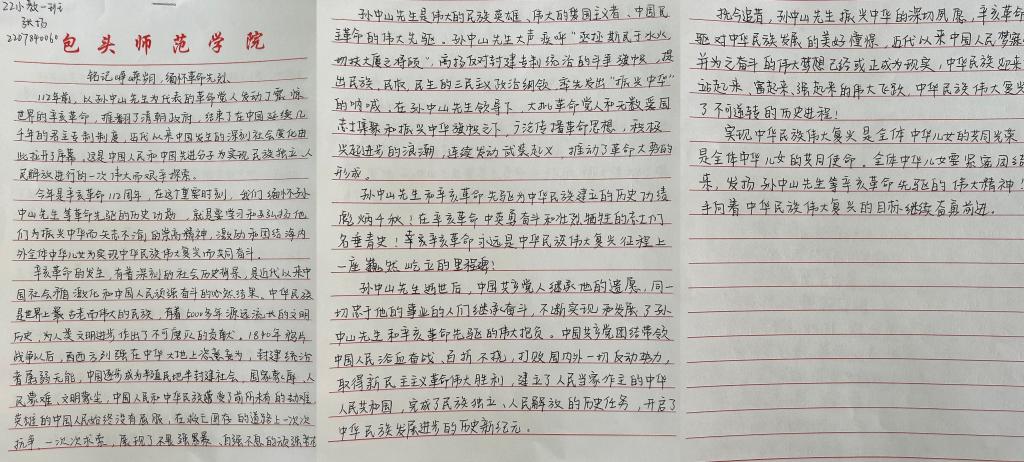 22小教一班
张巧
2207840060
包头师范学院
铭记峥嵘岁月,缅怀革命先烈
112年前,以孙中山先生为代表的革命党人发动了震惊
世界的辛亥革命,推翻了清朝政府,结束了在中国延续几
千年的君主专制制度,近代以来中国发生的深刻社会变化由
此拉开了序幕。这是中国人民和中国先进分子为实现民族独立、人
民解放进行的一次伟大而艰辛探索。
今年是辛亥革命112周年,在这个重要时刻,我们缅怀孙
中山先生等革命先驱的历史功勋,就是要学习和弘扬他
们为振兴中华而矢志不渝的崇高精神,激励和团结海内
外全体中华儿女为实现中华民族伟大复兴而共同奋斗。
辛亥革命的发生,有着深刻的社会历史背景,是近代以来中
国社会矛盾激化和中国人民顽强奋斗的必然结果。中华民族
是世界上最古老而伟大的民族,有着5000多年源远流长的文明
历史,为人类文明进步作出了不可磨灭的贡献。1840年鸦片
战争以后,西方列强在中华大地上恣意妄为,封建统治
者孱弱无能,中国逐步成为半殖民地半封建社会,国家蒙辱、人
民蒙难、文明蒙尘,中国人民和中华民族遭受了前所未有的劫难。
英雄的中国人民始终没有屈服,在救亡图存的道路上一次次
抗争、一次次求索,展现了不畏强暴、自强不息的顽强
孙中山先生是伟大的民族英雄、伟大的爱国主义者、中国民
主革命的伟大先驱。孙中山先生大声疾呼"亟拯斯民于水火,
切扶大厦之将倾",高扬反对封建专制统治的斗争旗帜,提
出民族、民权、民生的三民主义政治纲领,率先发出"振兴中华"
的呐喊。在孙中山先生领导下,大批革命党人和无数爱国
志士集聚和振兴中华旗帜之下,广泛传播革命思想,积极
兴起进步的浪潮,连续发动武装起义,推动了革命大势的
形成。
孙中山先生和辛亥革命先驱为中华民族建立的历史功绩
彪炳千秋!在辛亥革命中英勇奋斗和壮烈牺牲的志士们
名垂青史!辛亥革命永远是中华民族伟大复兴征程上
一座巍然屹立的里程碑!
孙中山先生逝世后,中国共产党人继承他的遗愿,同一
切忠于他的事业的人们继承奋斗,不断实现和发展了孙
中山先生和辛亥革命先驱的伟大抱负。中国共产党团结带领
中国人民浴血奋战、百折不挠,打败国内外一切反动势力,
取得新民主主义革命伟大胜利,建立了人民当家作主的中华
人民共和国,完成了民族独立、人民解放的历史任务,开启了
中华民族发展进步的历史新纪元。
抚今追昔,孙中山先生振兴中华的深切夙愿,辛亥革命
驱对中华民族发展的美好憧憬,近代以来中国人民梦寐
并为之奋斗的伟大梦想已经或正成为现实,中华民族迎来
站起来、富起来、强起来的伟大飞跃,中华民族伟大复兴
了不可逆转的历史进程!
实现中华民族伟大复兴是全体中华儿女的共同光荣,
是全体中华儿女的共同使命。全体中华儿女要紧密团结
来,发扬孙中山先生等辛亥革命先驱的伟大精神!
手向着中华民族伟大复兴的目标继续奋勇前进。